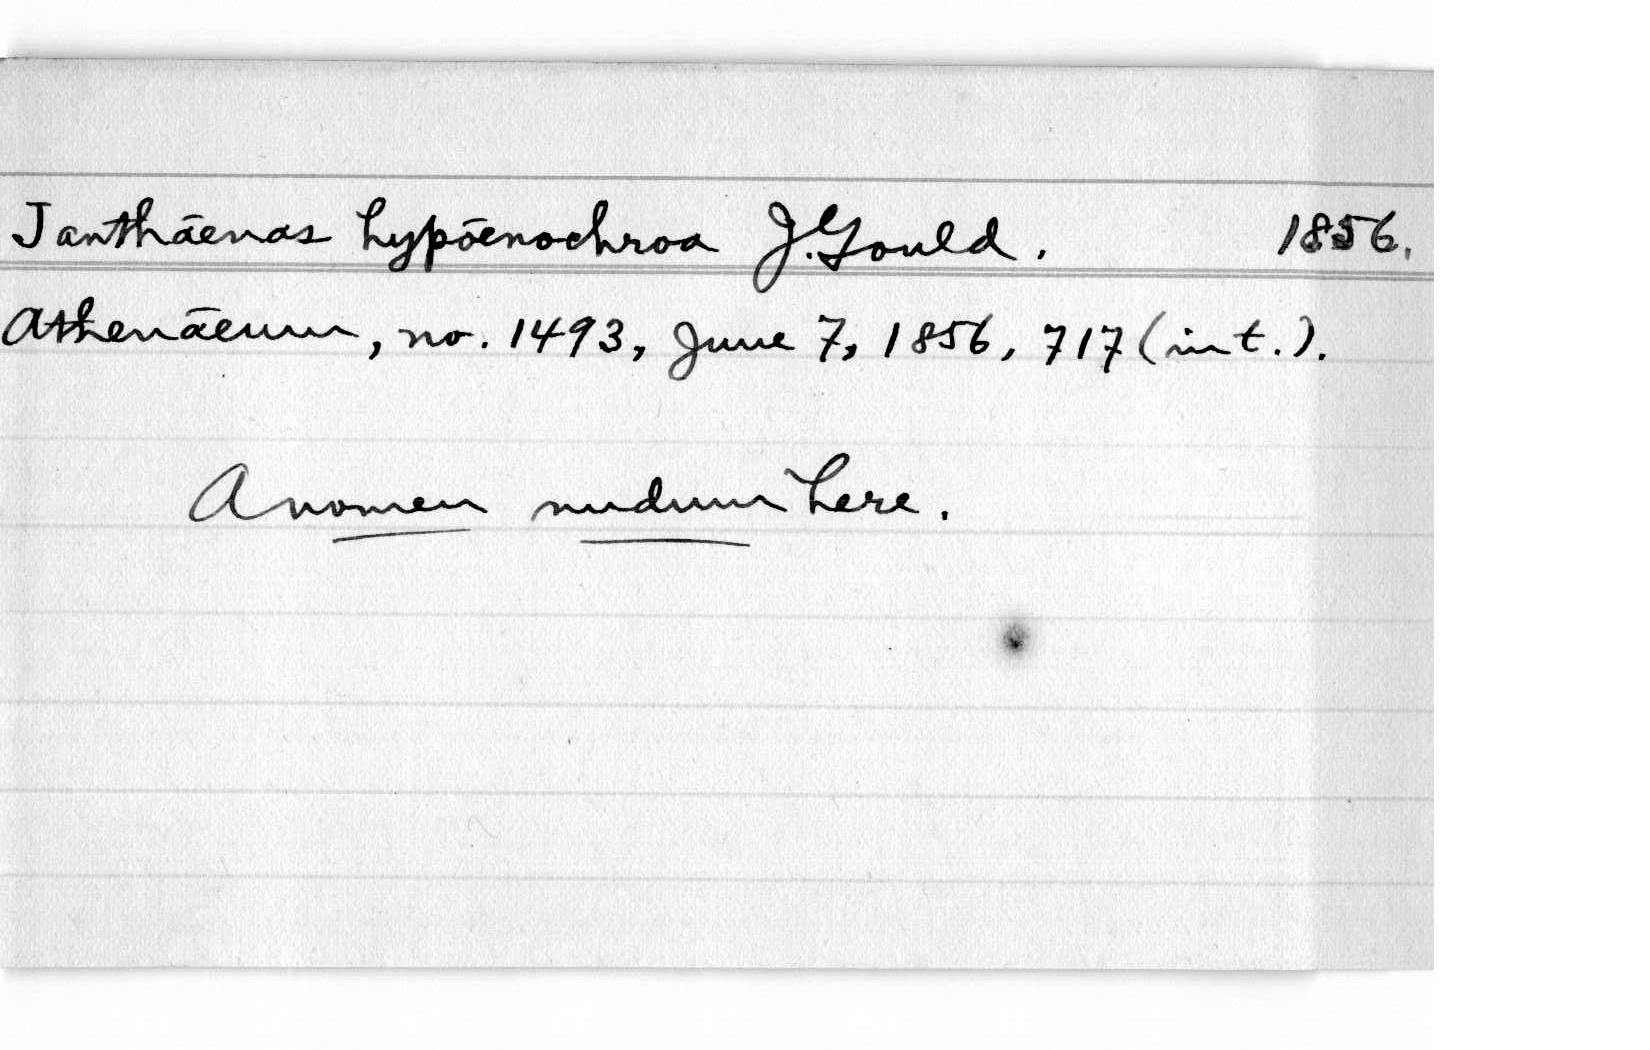 Janthāenas hypōenochroa J. Gould. 1856.
Athenāeum, no. 1493, June 7, 1856, 717 (int.).
A nomen nudum here.